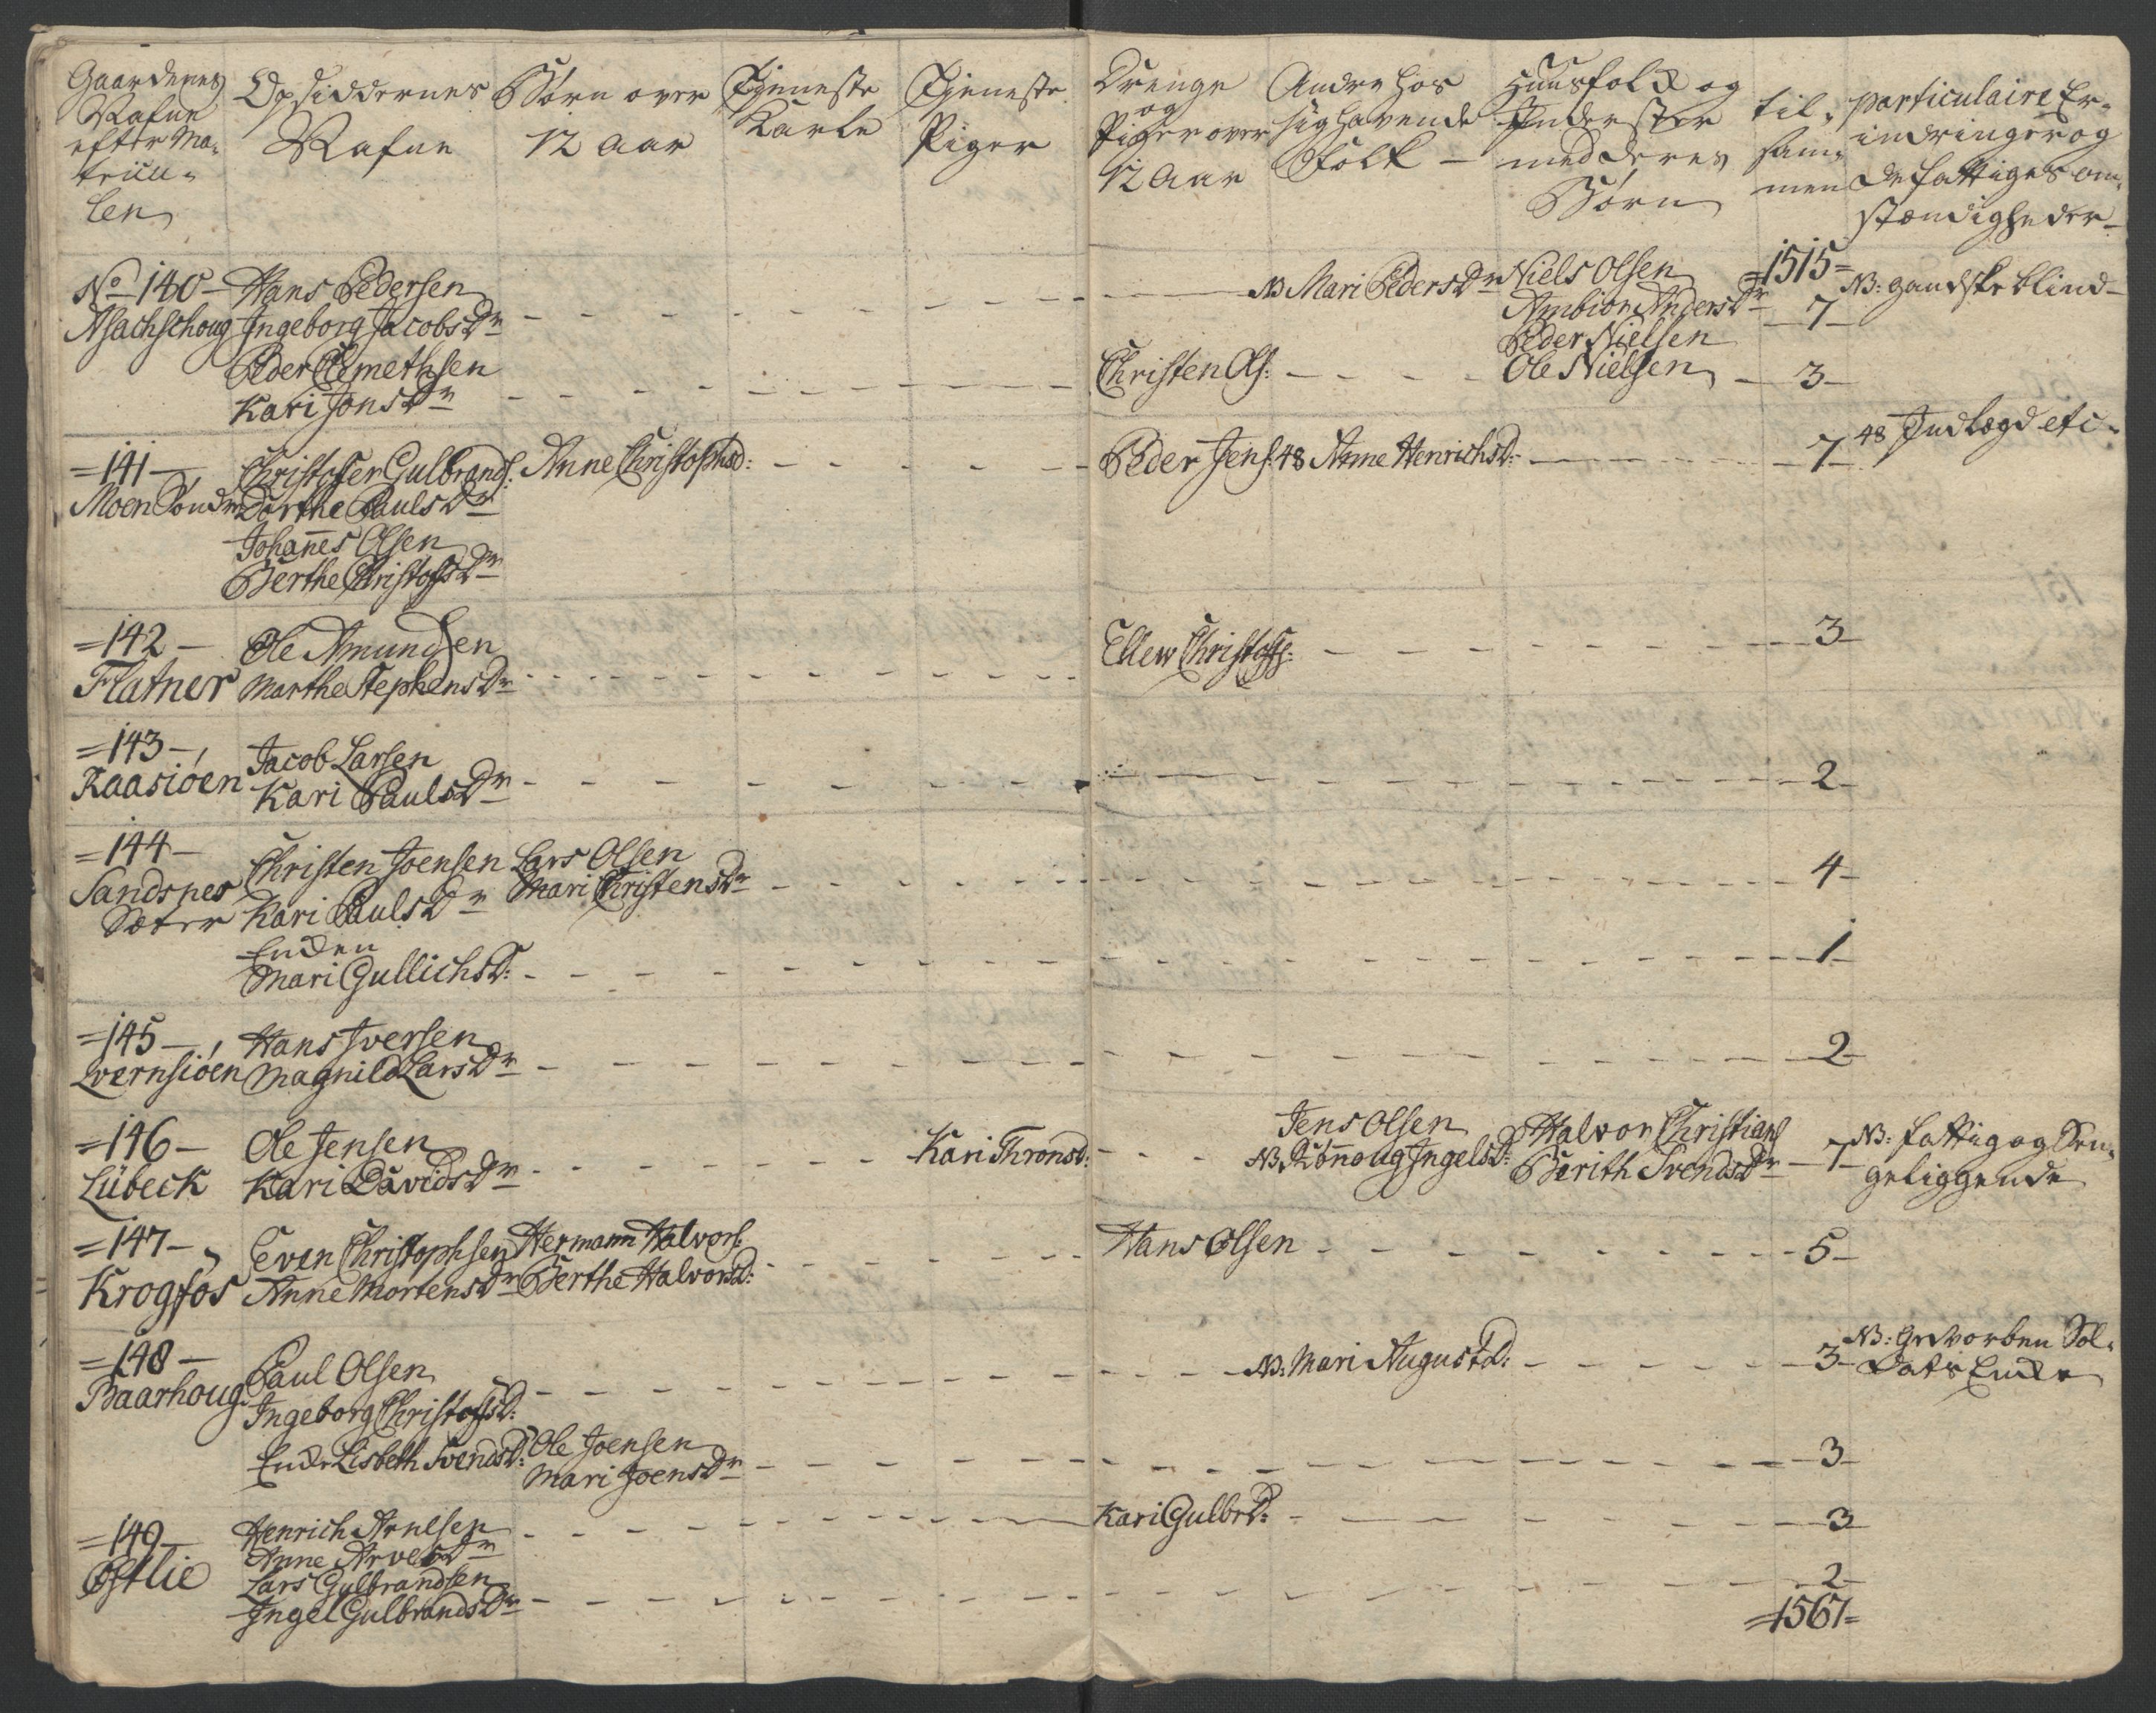 Gaardenes
Nafne
efter Ma-
tricu-
len
Opsiddernes
Nafne
Børn over
12 aar
Tjeneste
Karle
Tjeneste
Piger
Drenge
og
Piger over
12 Aar
Andre hos
sig havende
Folk –
Huusfolk og
Inderster
med deres
Børn
til-
sam-
men
particulaire Er-
indringer og
de fattiges om-
stændigheder –
=1515=
No 140 – Hans Pedersen – – – NB Mari PedersDr Niels Olsen NB: gandske blind –
Asachschoug Ingeborg JacobsDr Ambior AndersDr – 7 –
Peder Nielsen
Peder Clemethsen Christen Ols: – – Ole Nielsen – 3 –
Kari JonsDr
=141 – Christoffer Gulbrands: Anne ChristophsD: – – Peder Jens: 48 Anne HenrichsD: – 7 – 48 Indlægd etc.
Moen Söndre Dorthe PaulsDr
Johanes Olsen
Berthe ChristofsDr
=142 – Ole Amundsen Ellew Christoffs: – – 3 –
Flatner Marthe StephensDr
=143 – Jacob Larsen – – 2 –
Raasiöen Kari PaulsDr
=144 – Christen Joensen Lars Olsen
Sandsnes Kari PaulsDr Mari ChristensDr – – 4 –
Sæter
Enken
Mari GullichsD: – – 1
=145 – Hans Iversen – – 2 –
Qvernsiöen Magnild LarsDr
=146 – Ole Jensen Kari ThronsD: – – Jens Olsen Halvor Christians – 7 – NB: fattig og Sen-
Lübeck Kari DavidsDr NB. Rönnoug IngelsD: Berith SvendsDr geliggende
=147 – Even Christophsen Hermann Halvors: Hans Olsen – – 5 –
Krogfos Anne MortensDr Berthe HalvorsD:
=148 – Paul Olsen – – NB: Mari AugustD: – – 3 – NB: Gevorben Sol-
Baarhoug Ingeborg ChristofsD: dats Enke
Enke Lisbeth SvendsD: Ole Joensen – – 3 –
Mari JoensDr
=149 – Henrich Arnesen – – Kari GulbrD: – – 3
Östlie Anne ArvesDr
Lars Gulbrandsen – – 2 –
Ingel GulbrandsDr
=1567=